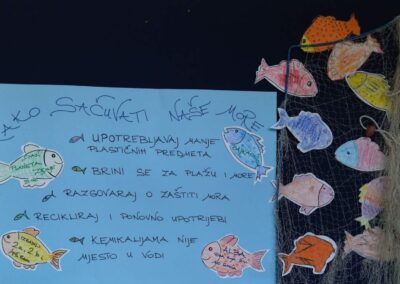 KAKO SAČUVATI NAŠE MORE
UPOTREBLJAVAJ MANJE
PLASTIČNIH PREDMETA
BRINI SE ZA PLAŽU I MORE
RAZGOVARAJ O ZAŠTITI MORA
RECIKLIRAJ I PONOVNO UPOTRIJEBI
KEMIKALIJAMA NIJE
MJESTO U VODI
DAN
PLANETA